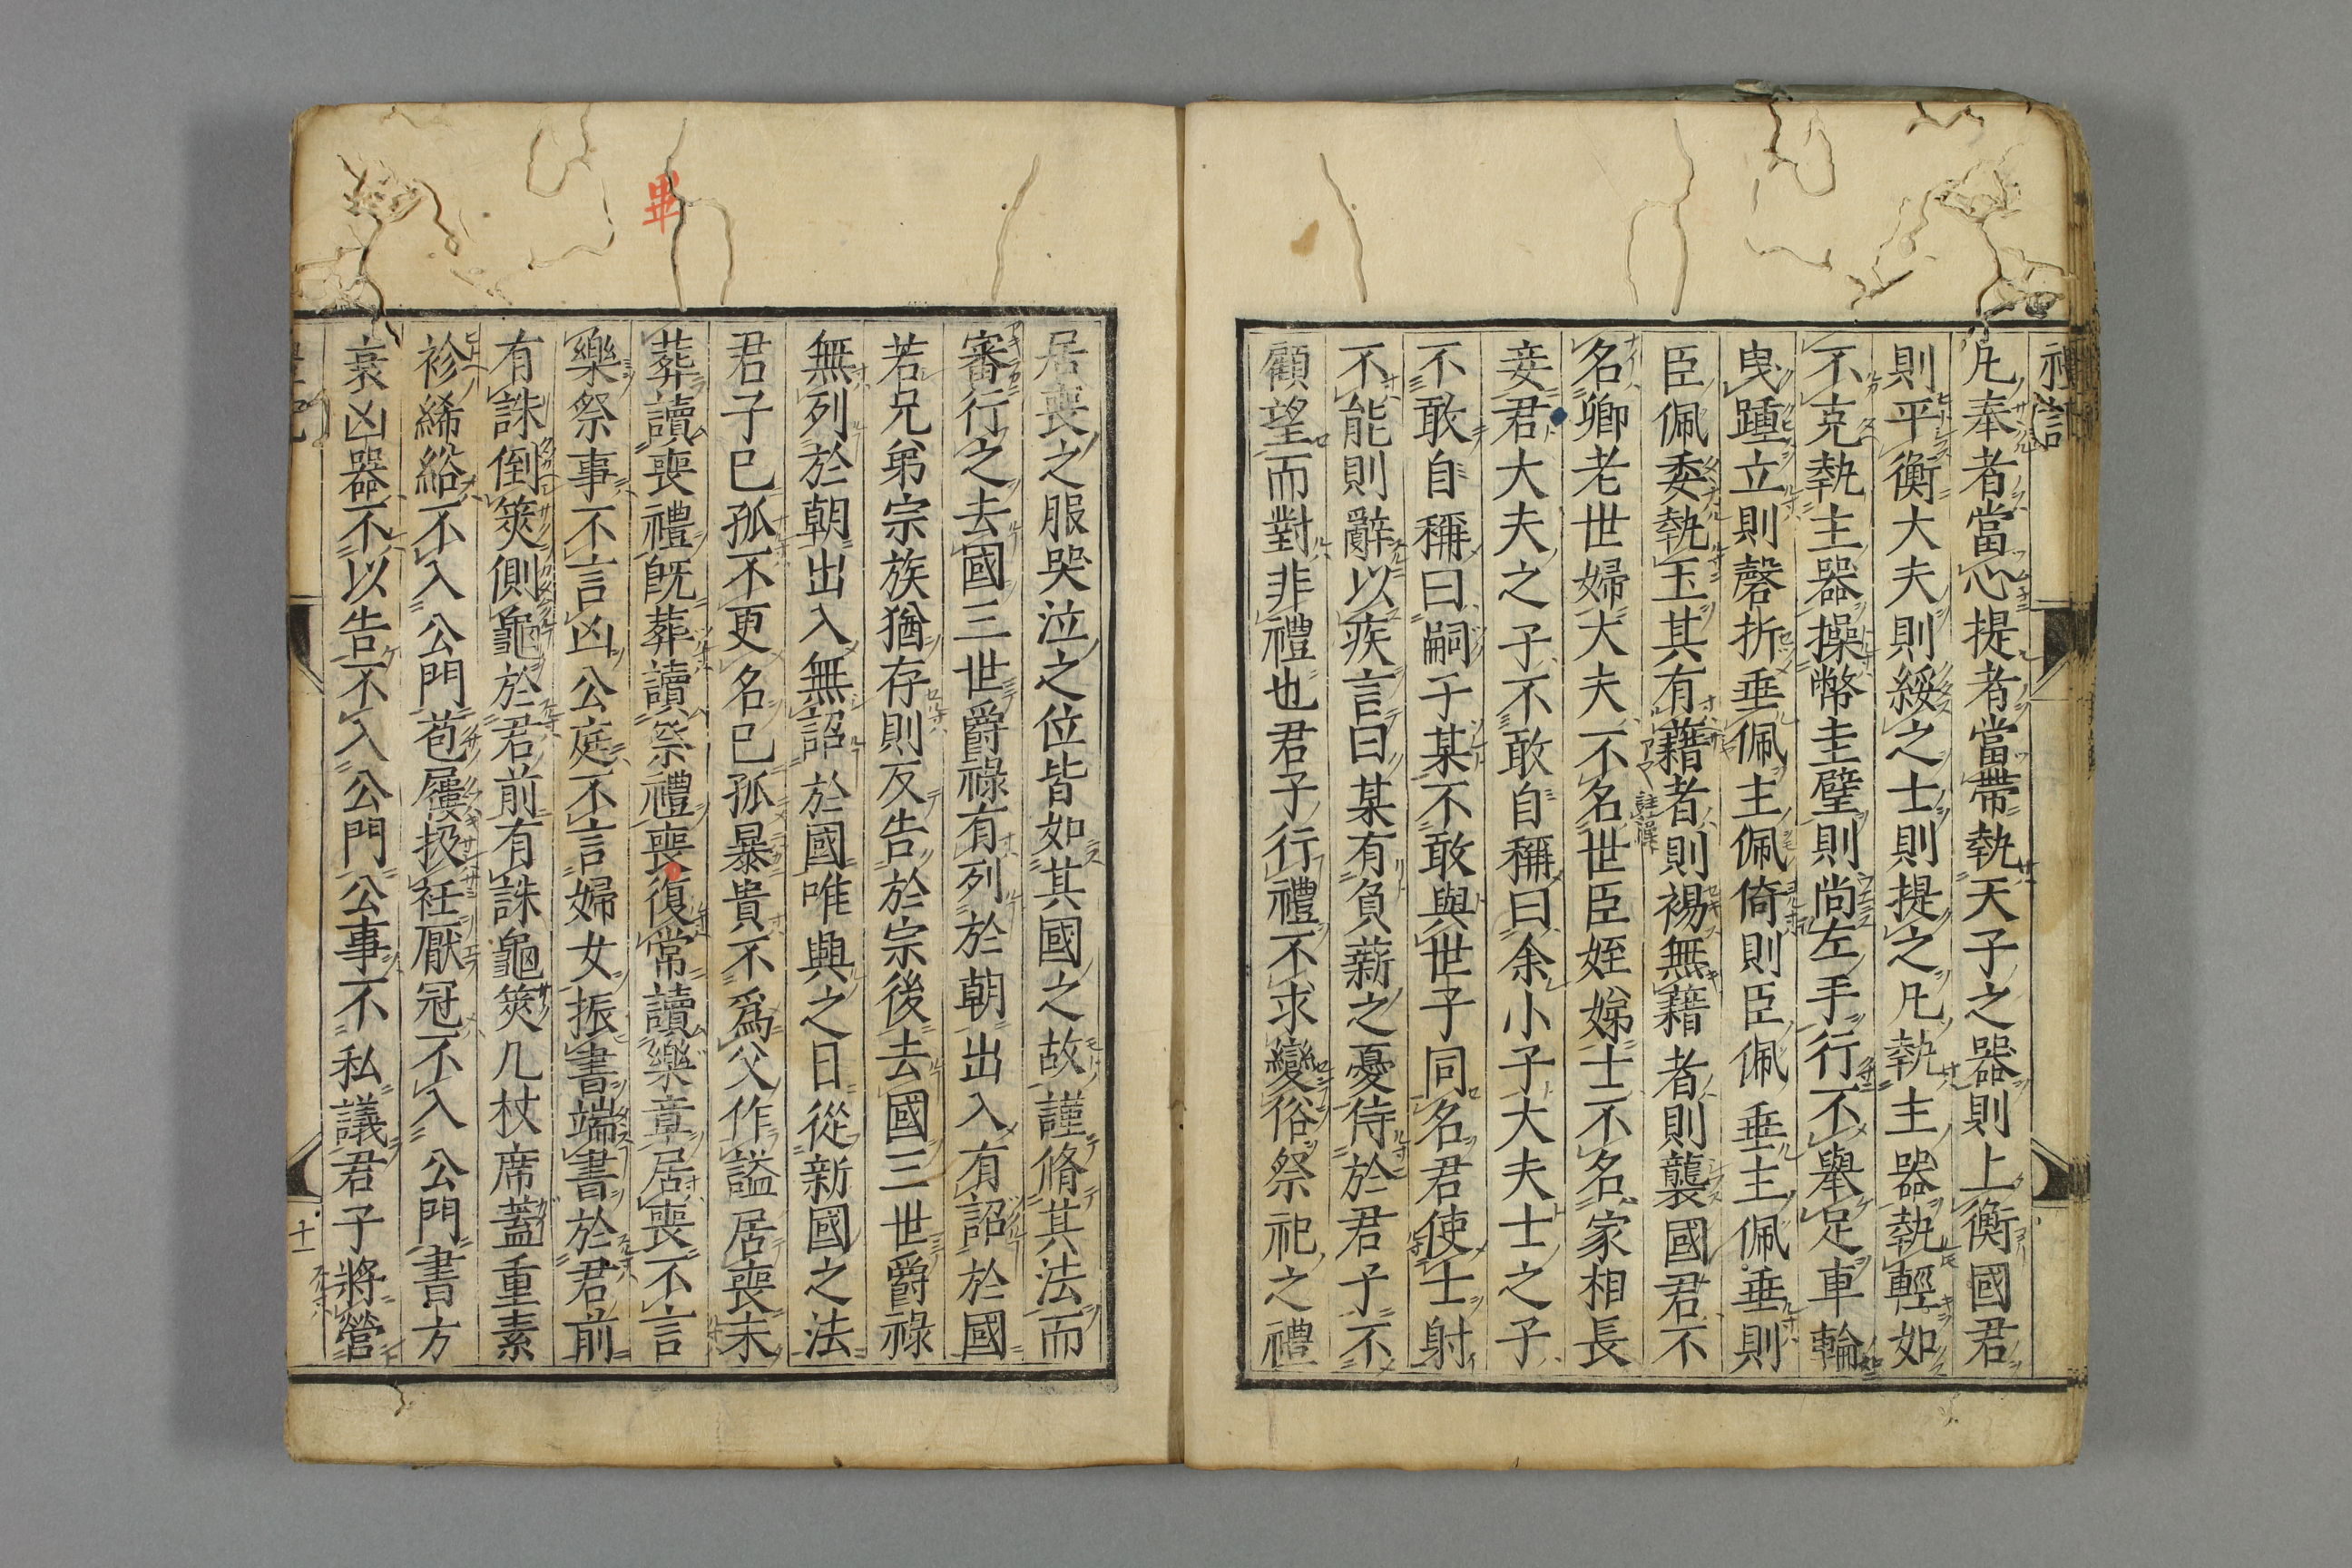 禮記
凡奉者當心提者當帶執天子之器則上衡國君
則平衡大夫則綏之士則提之凡執主器執輕如
不克執主器操幣圭璧則尚左手行不舉足車輪
曳踵立則磬折垂佩主佩倚則臣佩垂主佩垂則
臣佩委執玉其有藉者則裼無藉者則襲國君不
名卿老世婦大夫不名世臣姪娣士不名家相長
妾君大夫之子不敢自稱曰余小子大夫士之子
不敢自稱曰嗣子某不敢與世子同名君使士射
不能則辭以疾言曰某有負薪之憂侍於君子不
顧望而對非禮也君子行禮不求變俗祭祀之禮
畢
居喪之服哭泣之位皆如其國之故謹脩其法而
審行之去國三世爵祿有列於朝出入有詔於國
若兄弟宗族猶存則反告於宗後去國三世爵祿
無列於朝出入無詔於國唯興之日從新國之法
君子已孤不更名已孤暴貴不爲父作謚居喪未
葬讀喪禮既葬讀祭禮喪復常讀樂章居喪不言
樂祭事不言凶公庭不言婦女振書端書於君前
有誅倒筴側龜於君前有誅龜筴几杖席蓋重素
袗絺綌不入公門苞屨扱衽厭冠不入公門書方
衰凶器不以告不入公門公事不私議君子將營
十一